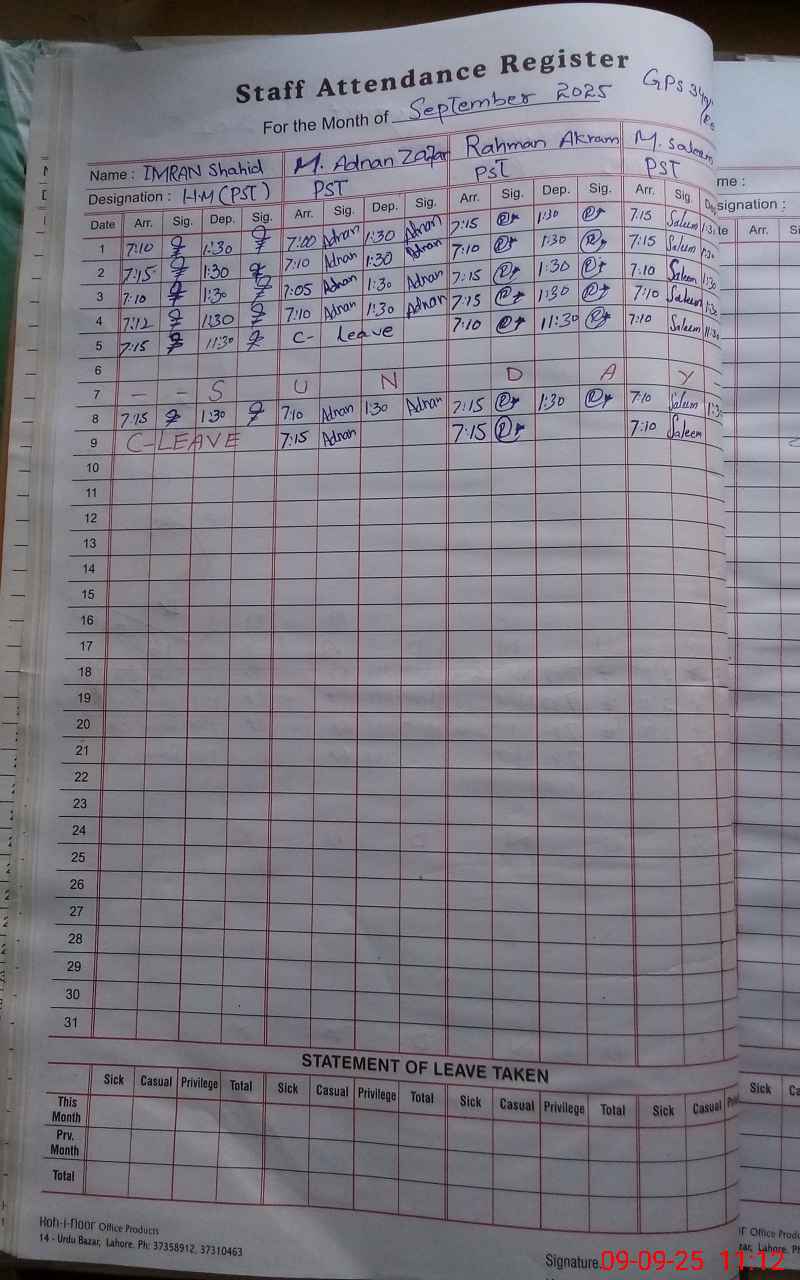 Staff Attendance Register
For the Month of September 2025
Name : IMRAN Shahid M. Adnan Zafar Rahman Akram M. Saleem me :
Designation : H.M (PST) PST PST PST signation :
Date Arr. Sig. Dep. Sig. Arr. Sig. Dep. Sig. Arr. Sig. Dep. Sig. Arr. Sig. De te Arr. Si
1 7:10 1:30 7:00 Adnan 1:30 Adnan 7:15 1:30 7:15 Saleem 1:3
2 7:15 1:30 7:10 Adnan 1:30 Adnan 7:10 1:30 7:15 Saleem 1:30
3 7:10 1:30 7:05 Adnan 1:30 Adnan 7:15 1:30 7:10 Saleem 1:30
4 7:12 1:30 7:10 Adnan 1:30 Adnan 7:15 1:30 7:10 Saleem 1:30
5 7:15 11:30 C- Leave 7:10 11:30 7:10 Saleem 11:30
6
7 – – S U N D A Y –
8 7:15 1:30 7:10 Adnan 1:30 Adnan 7:15 1:30 7:10 Saleem 1:30
9 C-LEAVE 7:15 Adnan 7:15 7:10 Saleem
10
11
12
13
14
15
16
17
18
19
20
21
22
23
24
25
26
27
28
29
30
31
STATEMENT OF LEAVE TAKEN
Sick Casual Privilege Total Sick Casual Privilege Total Sick Casual Privilege Total Sick Casual Sick Ca
This Month
Prv. Month
Total
Koh-i-noor Office Products
14 - Urdu Bazar, Lahore. Ph: 37358912, 37310463
Office Produ
zar, Lahore. P
Signature.
09-09-25 11:12